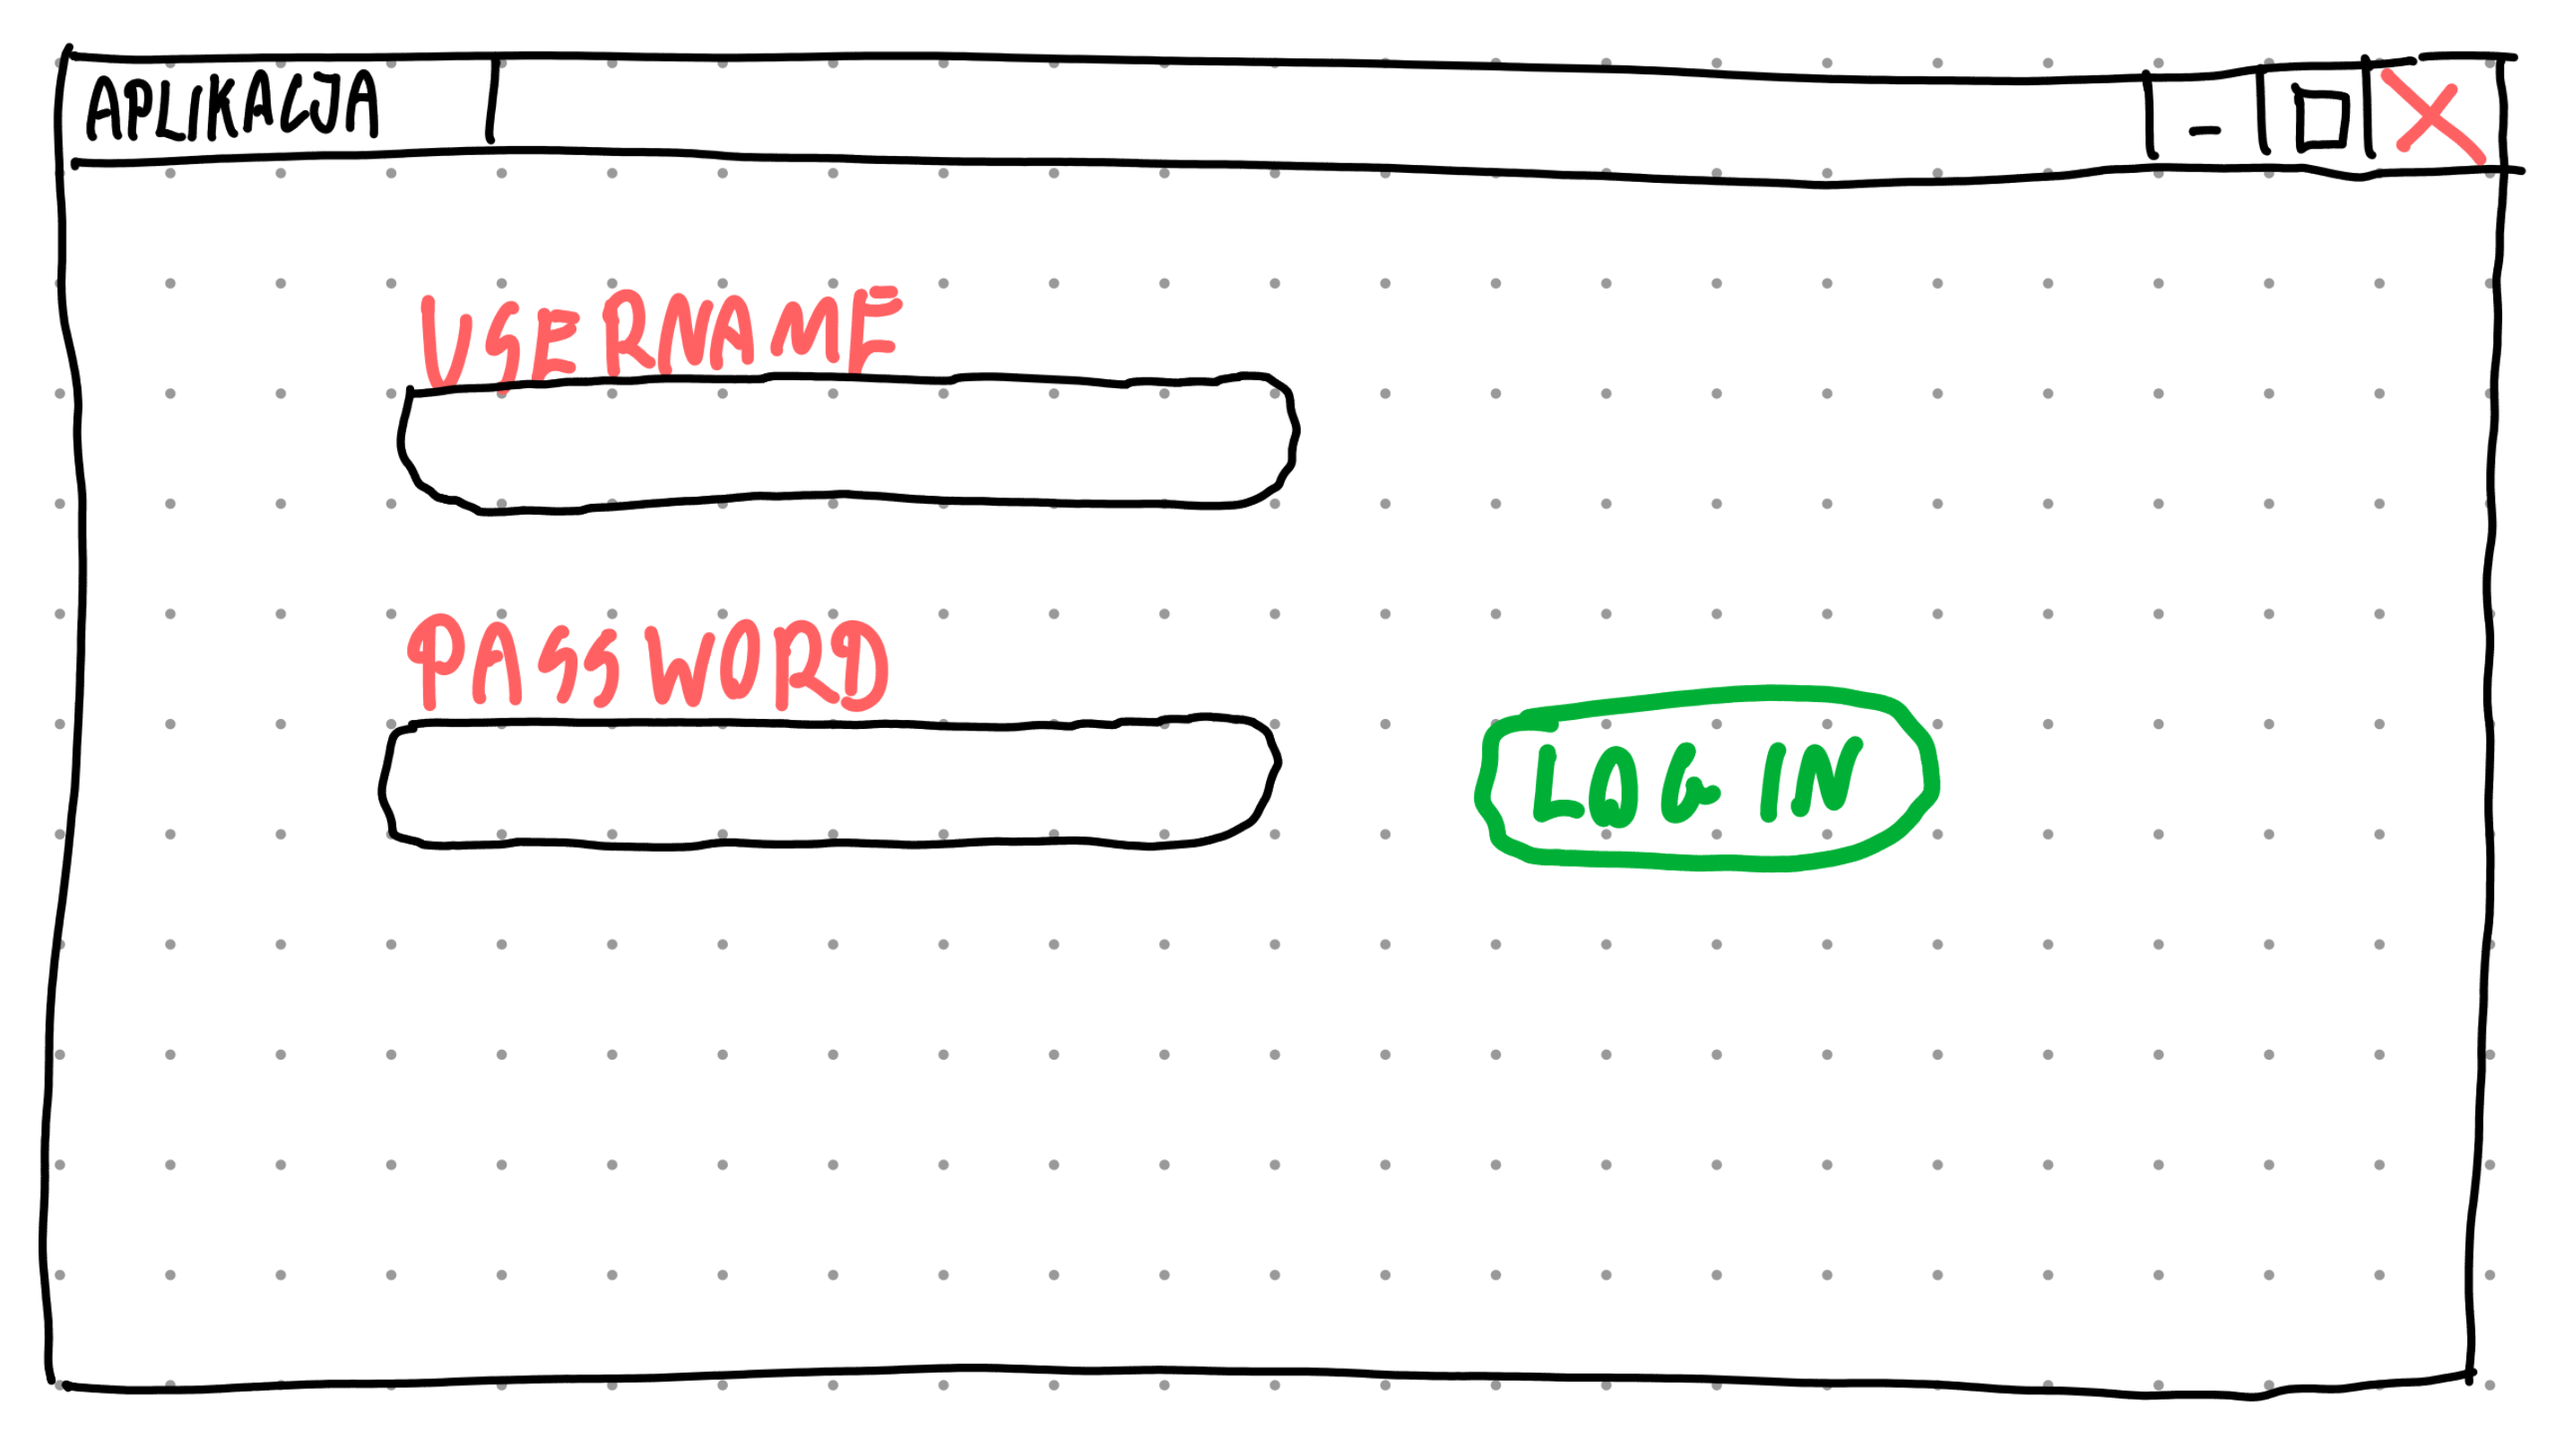 APLIKACJA
USERNAME
PASSWORD
LOG IN